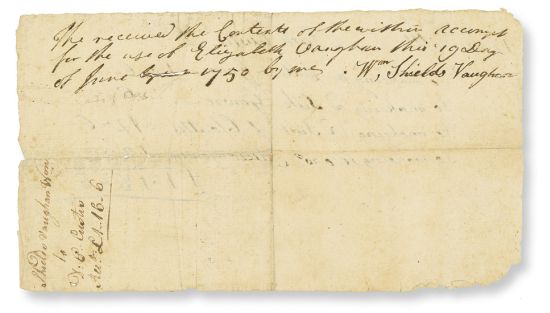 The received the Contents of the within account
for the use of Elizabeth Vaughan this 19 Day
of June 1750 by me . Wm. Shields Vaughan
Shields Vaughan
to
Custis
£1.16.6